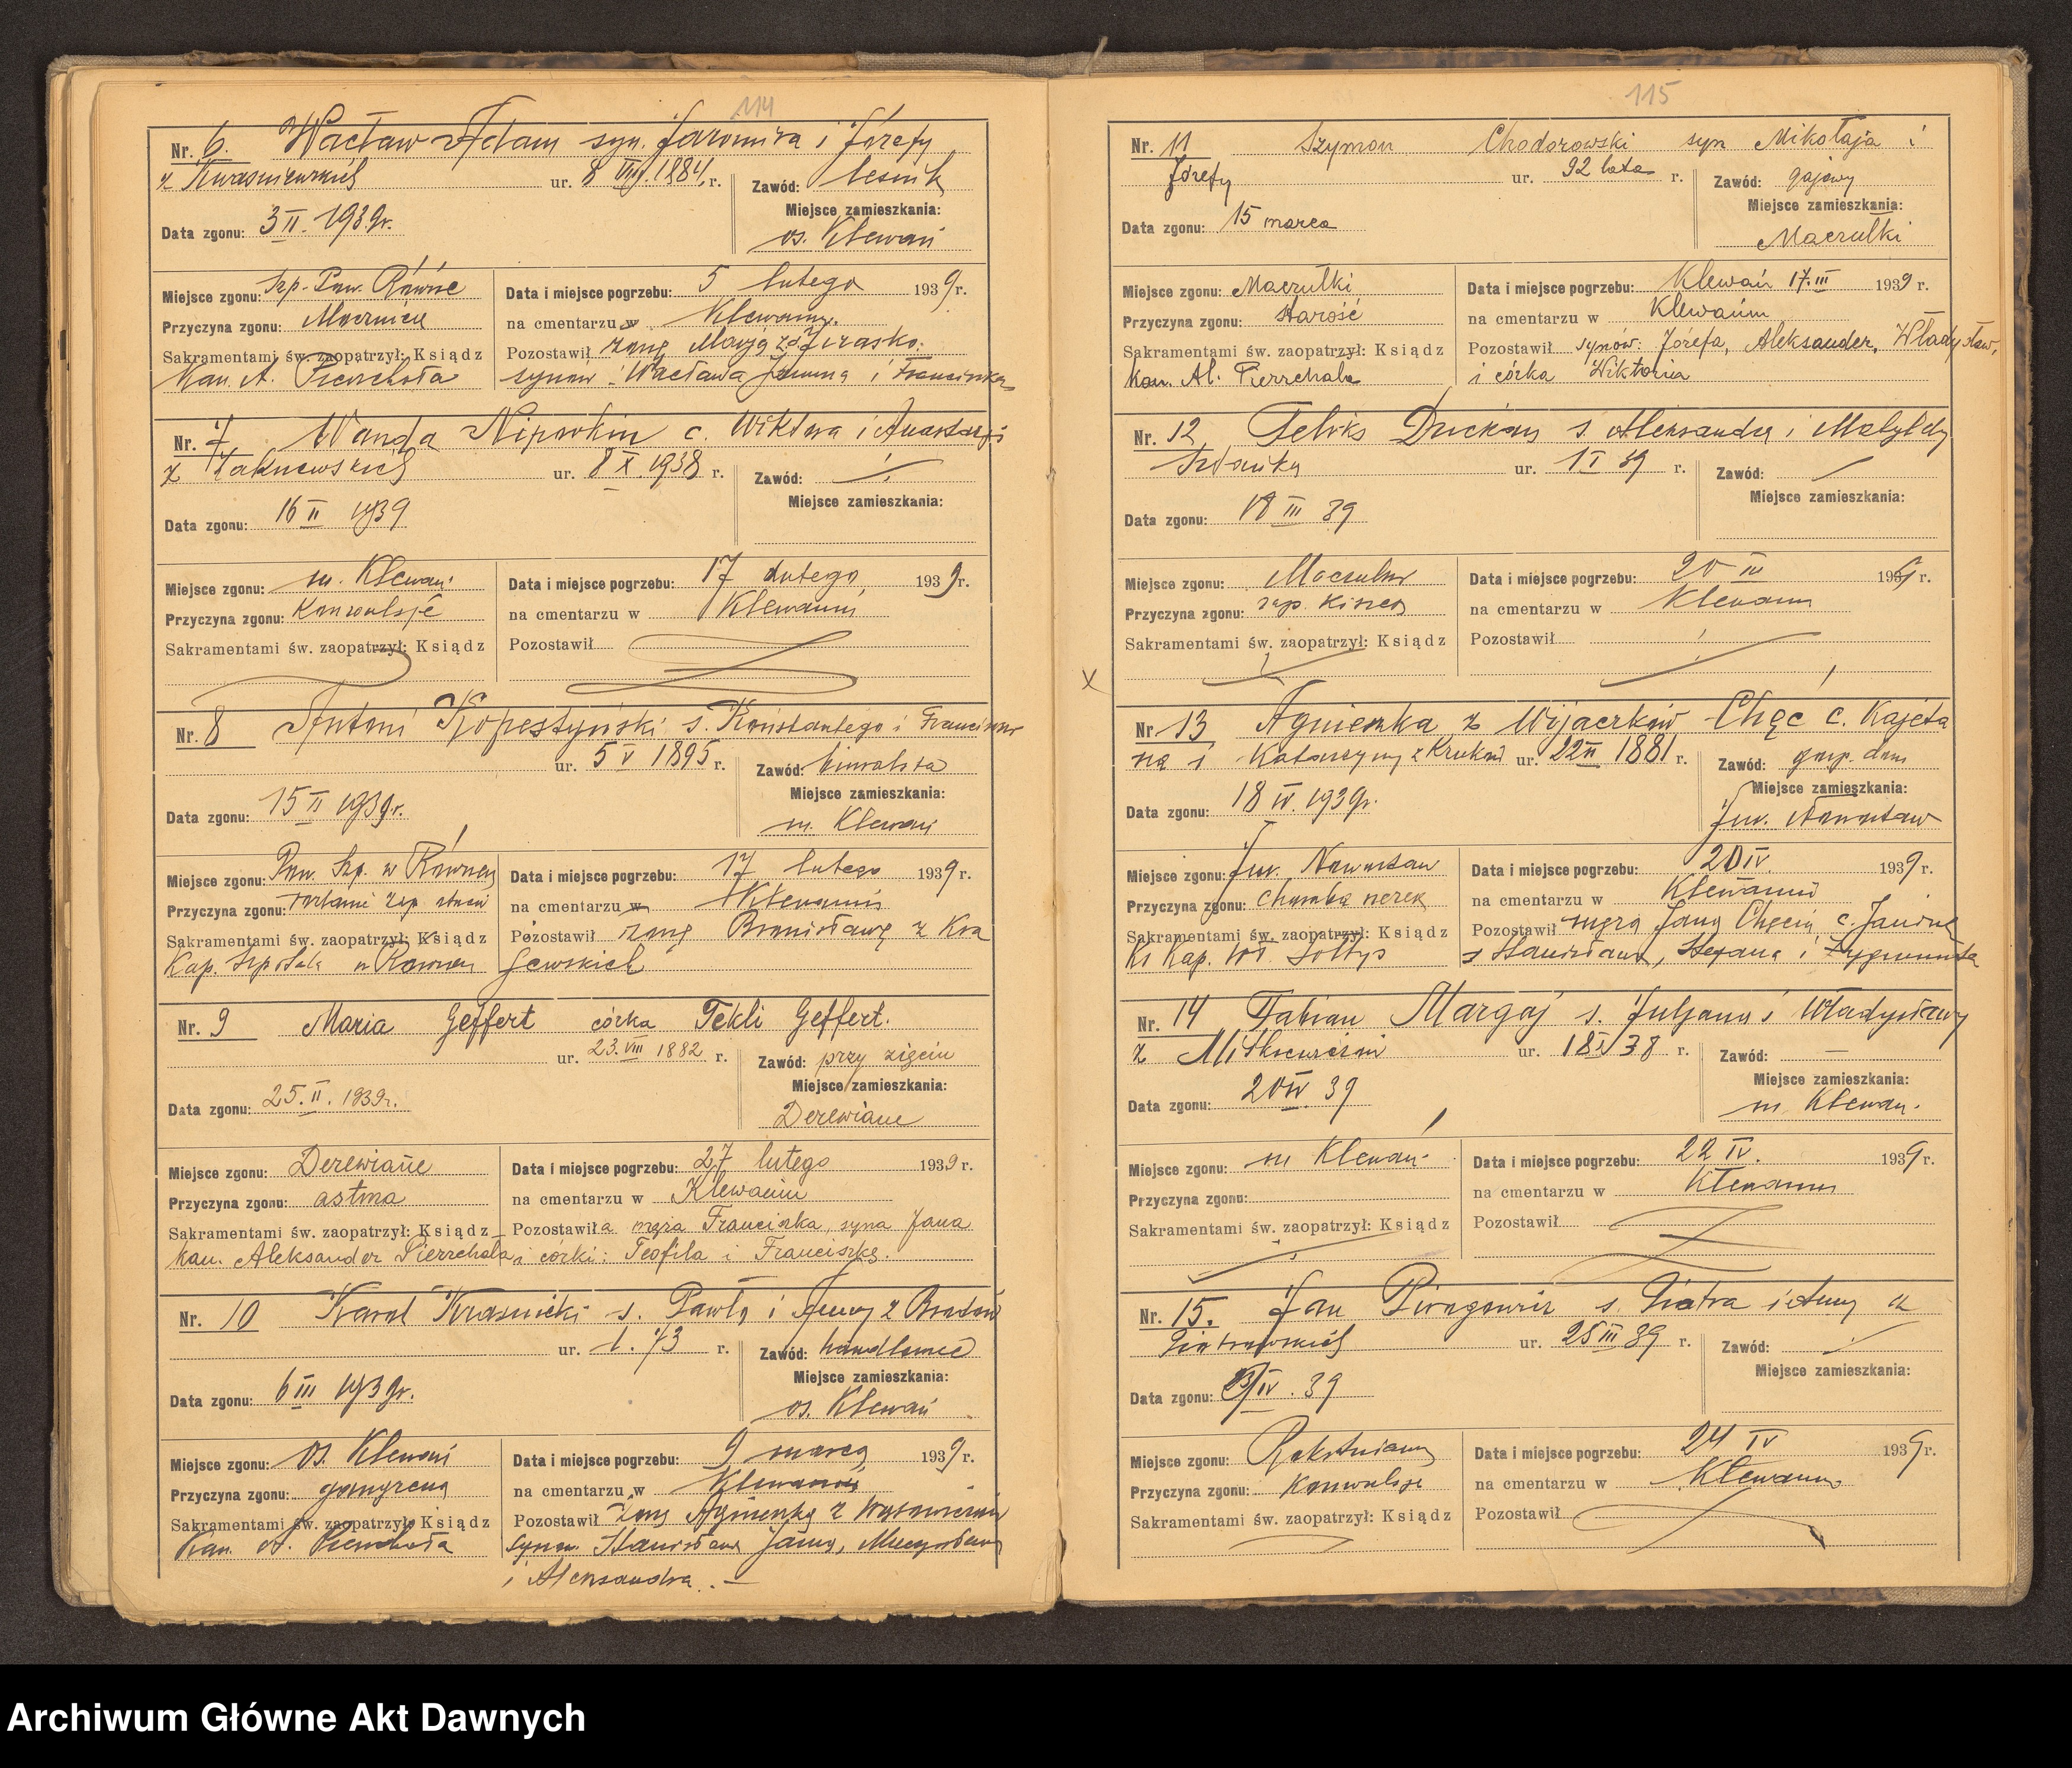 114
Nr. 6. Wacław Adam syn. Jaromira i Józefy
z Kwaśniewskich ur. 8 VIII. 1884. r. Zawód: leśnik
Miejsce zamieszkania:
Data zgonu: 3 II. 1939r. os. Klewań
Miejsce zgonu: Szp. Pow. Równe Data i miejsce pogrzebu: 5 lutego 1939 r.
Przyczyna zgonu: na cmentarzu w Klewaniu.
Sakramentami św. zaopatrzył: Ksiądz Pozostawił żonę Marję z d. Jirasko.
Kan. A. Pierzchała synów: Wacława i Franciszka
Nr. 7 Wanda c. Wiktora i Anastazji
z ur. 8 X. 1938 r. Zawód:
Miejsce zamieszkania:
Data zgonu: 16 II 1939
Miejsce zgonu: m. Klewań. Data i miejsce pogrzebu: 17 lutego 1939 r.
Przyczyna zgonu: Konwulsje na cmentarzu w Klewaniu
Sakramentami św. zaopatrzył: Ksiądz Pozostawił
Nr. 8 Antoni Kopestyński s. Konstantego i
ur. 5 V 1895 r. Zawód:
Miejsce zamieszkania:
Data zgonu: 15 II 1939r. m. Klewań
Miejsce zgonu: Pow. Szp. w Równem Data i miejsce pogrzebu: 17 lutego 1939 r.
Przyczyna zgonu: na cmentarzu w Klewaniu
Sakramentami św. zaopatrzył: Ksiądz Pozostawił żonę Bronisławę z Kra
Kap. Szpitala w Równem jewskich
Nr. 9 Maria Geffert córka Tekli Geffert.
ur. 23. VIII 1882 r. Zawód: przy zięciu
Miejsce zamieszkania:
Data zgonu: 25. II. 1939r. Derewiane
Miejsce zgonu: Derewiane Data i miejsce pogrzebu: 27 lutego 1939 r.
Przyczyna zgonu: astma na cmentarzu w Klewaniu
Sakramentami św. zaopatrzył: Ksiądz Pozostawiła męża Franciszka, syna Jana
kan. Aleksander Pierzchała i córki: Teofila i Franciszkę.
Nr. 10 Karol Krasnicki s. Pawła i Anny z
ur. 1. 73 r. Zawód: handlowiec
Miejsce zamieszkania:
Data zgonu: 6 III 1939r. os. Klewań
Miejsce zgonu: os. Klewań Data i miejsce pogrzebu: 9 marca 1939 r.
Przyczyna zgonu: gangrena na cmentarzu w Klewaniu
Sakramentami św. zaopatrzył: Ksiądz Pozostawił żonę Agnieszkę z
Kan. A. Pierzchała synów. Stanisława Jana, Mieczysława
i Aleksandra. —
115
Nr. 11 Szymon Chodorowski syn Mikołaja i
Józefy ur. 92 lata r. Zawód: gajowy
Miejsce zamieszkania:
Data zgonu: 15 marca Maczulki
Miejsce zgonu: Maczułki Data i miejsce pogrzebu: Klewań 17. III 1939 r.
Przyczyna zgonu: starość na cmentarzu w Klewaniu
Sakramentami św. zaopatrzył: Ksiądz Pozostawił synów: Józefa, Aleksander, Władysław,
kan. Al. Pierzchała i córka Wiktoria
Nr. 12 Feliks s. Aleksandra i Matyldy
ur. 1 I 39 r. Zawód:
Miejsce zamieszkania:
Data zgonu: 18 III 39
Miejsce zgonu: Data i miejsce pogrzebu: 20 1939 r.
Przyczyna zgonu: zap. kiszek na cmentarzu w Klewaniu
Sakramentami św. zaopatrzył: Ksiądz Pozostawił
X
Nr. 13 Agnieszka z Wojaczków Chęć c. Kajeta
na i Katarzyny z Kruków ur. 22 II 1881 r. Zawód: gosp. dom
Miejsce zamieszkania:
Data zgonu: 18 IV. 1939r. Juw. Nowostaw
Miejsce zgonu: Juw. Nowostaw Data i miejsce pogrzebu: 20 IV. 1939 r.
Przyczyna zgonu: choroba nerek na cmentarzu w Klewaniu
Sakramentami św. zaopatrzył: Ksiądz Pozostawił męża Jana Chęcia c. Janinę
Ks Kap. Wł. Sołtys s Stanisława, Stefana i Zygmunta
Nr. 14 Fabian Margaj s. Juljana i Władysławy
z ur. 18 I 38 r. Zawód: —
Miejsce zamieszkania:
Data zgonu: 20 IV. 39 m. Klewań.
Miejsce zgonu: m Klewań Data i miejsce pogrzebu: 22 IV. 1939 r.
Przyczyna zgonu: na cmentarzu w Klewaniu
Sakramentami św. zaopatrzył: Ksiądz Pozostawił
Nr. 15. Jan s. Piotra i Anny z
Piotrowskich ur. 25 III 39 r. Zawód:
Miejsce zamieszkania:
Data zgonu: IV. 39
Miejsce zgonu: Data i miejsce pogrzebu: 24 IV 1939 r.
Przyczyna zgonu: Konwulsje na cmentarzu w Klewaniu
Sakramentami św. zaopatrzył: Ksiądz Pozostawił
Archiwum Główne Akt Dawnych